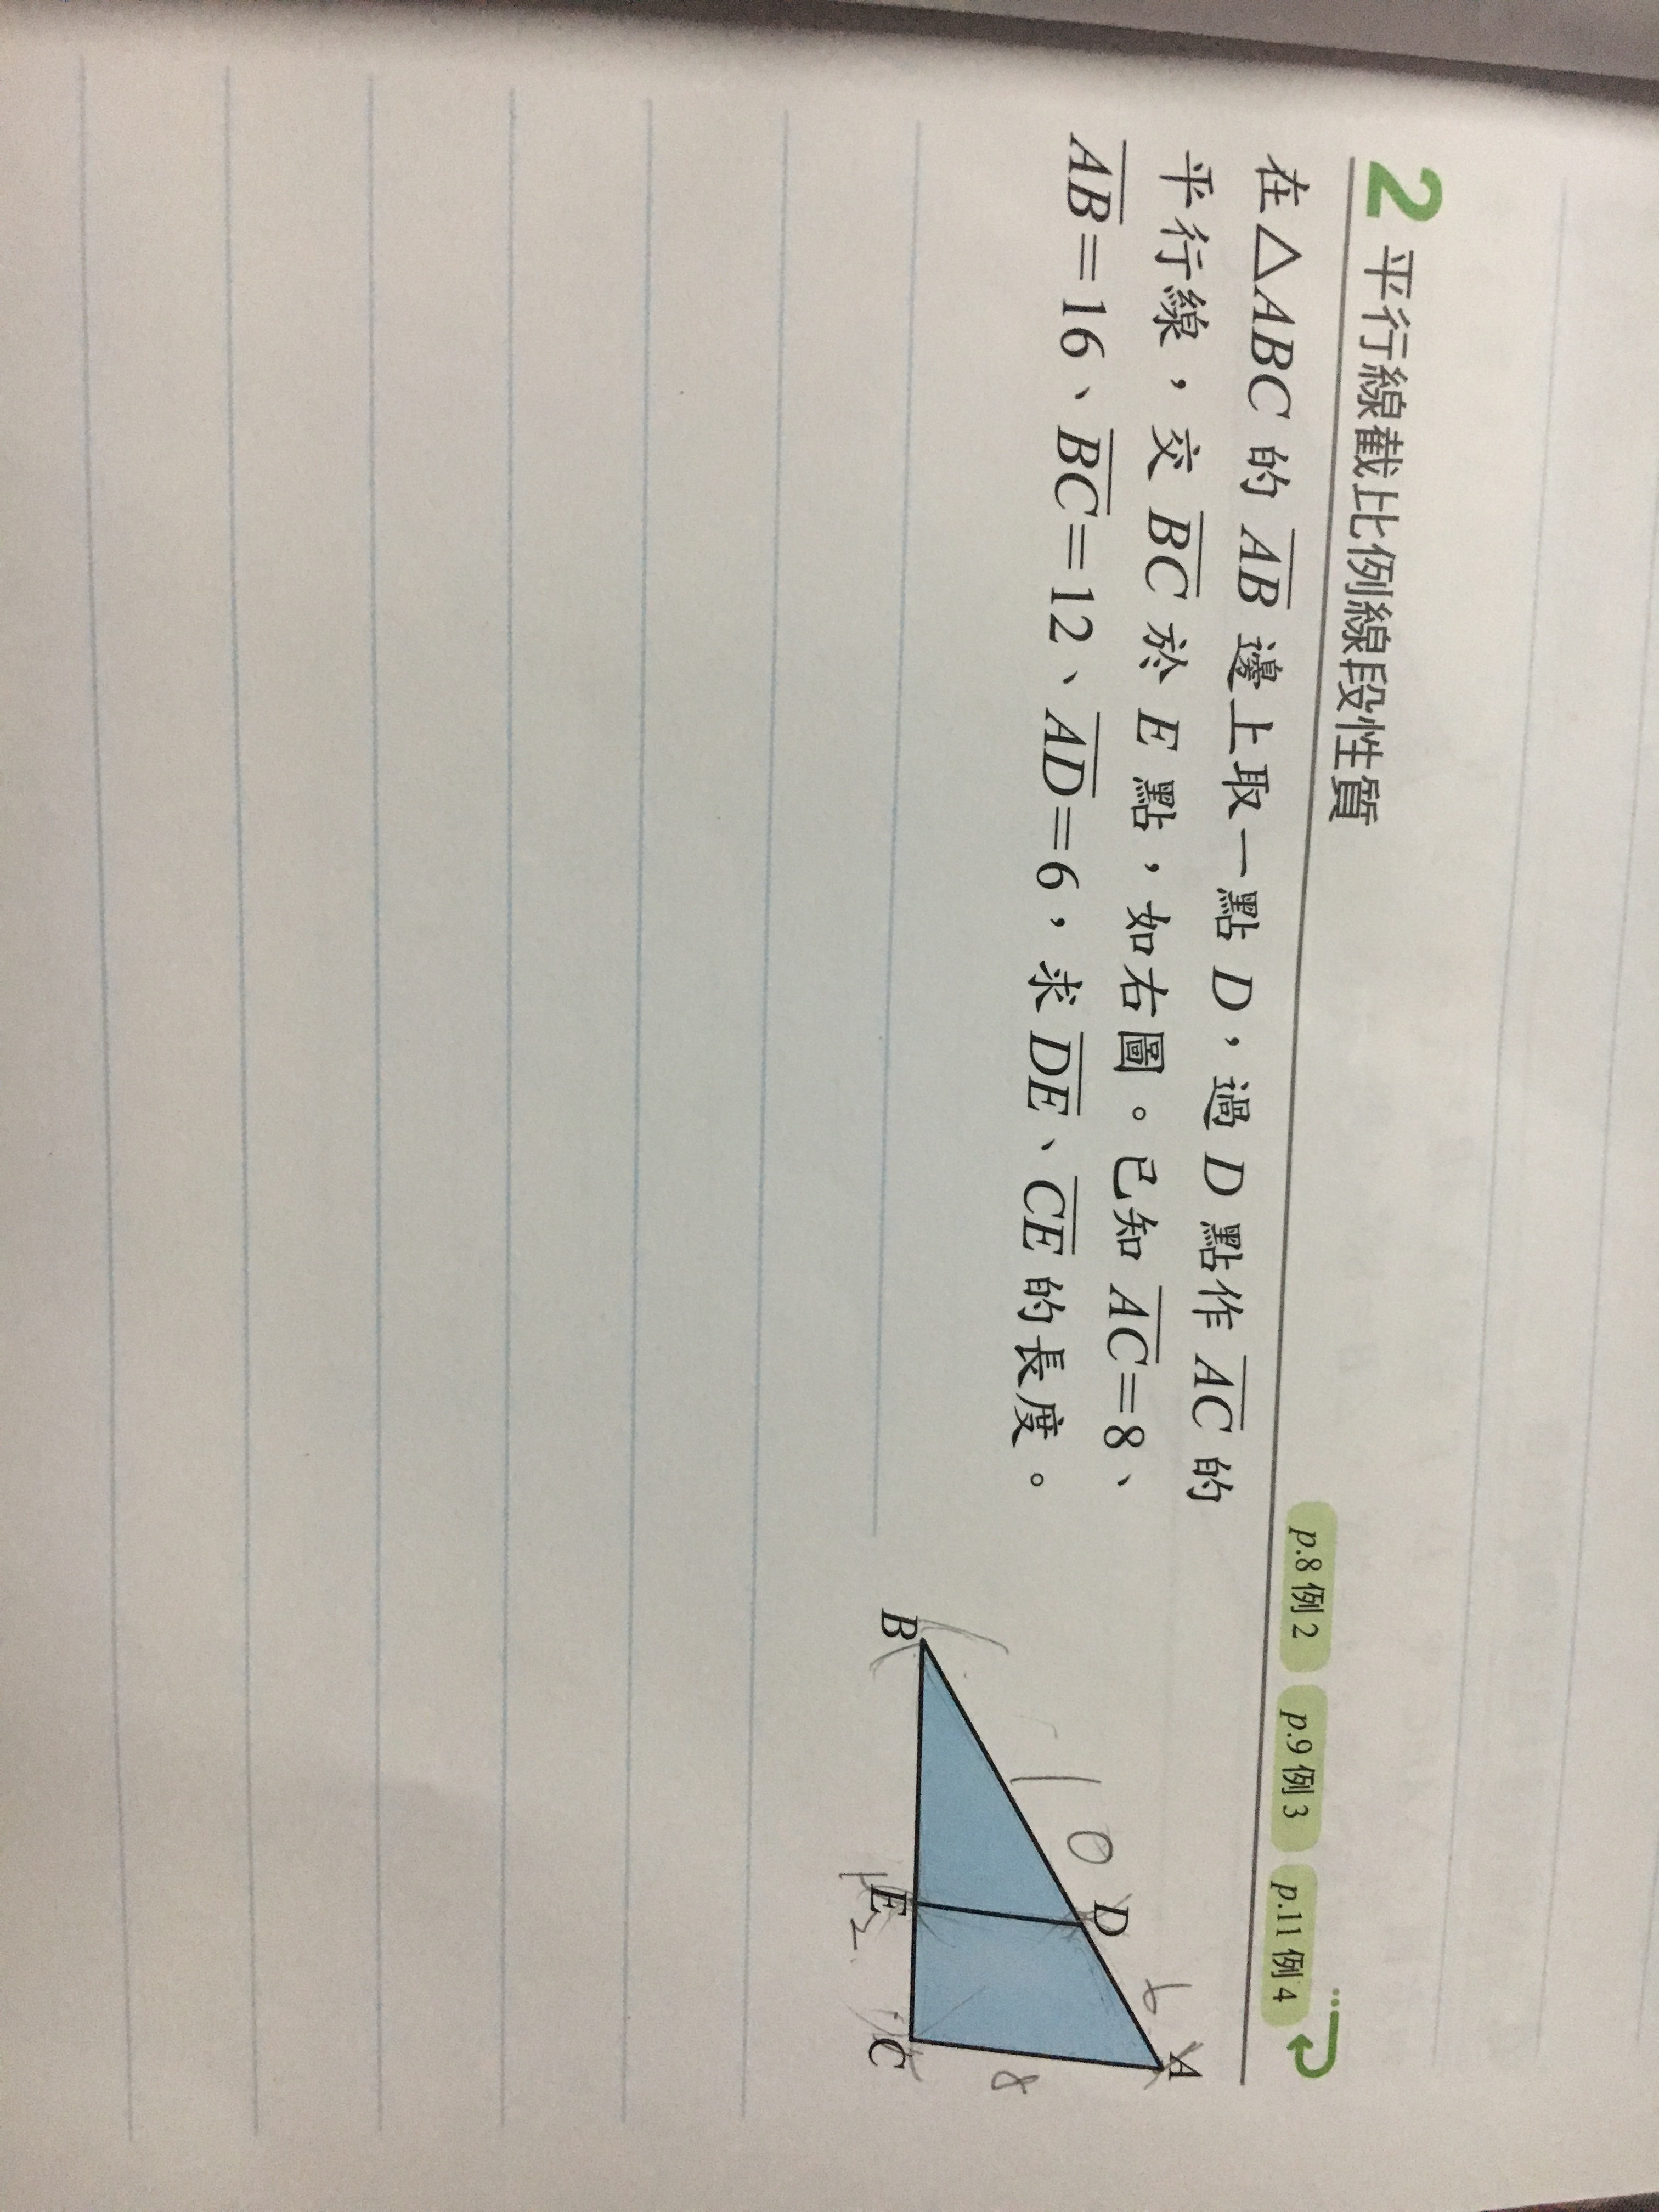 2 平行線截比例線段性質
p.8 例 2 p.9 例 3 p.11 例 4
在△ABC 的 AB 邊上取一點 D，過 D 點作 AC 的
平行線，交 BC 於 E 點，如右圖。已知 AC=8、
AB=16、BC=12、AD=6，求 DE、CE 的長度。
A
6
D
10
8
B
E
C
12